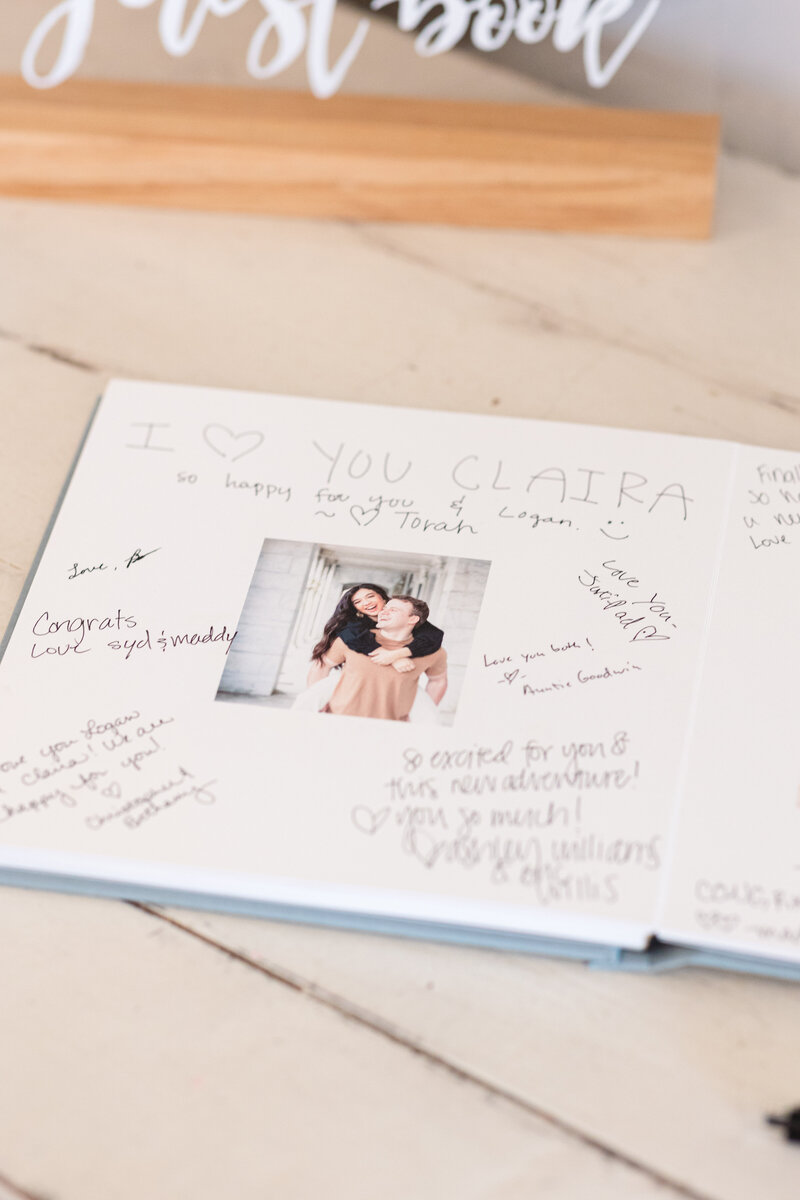 guest book
I ♡ YOU CLAIRA
so happy for you & Logan. :)
~ ♡ Torah
Love,
Congrats
Love syd & maddy
Love You-
Love you both!
-♡- Auntie Goodwin
love you Logan
Claira! We are
happy for you!
♡
Christopher &
Bethany
so excited for you &
this new adventure!
♡ you so much!
♡ ashley williams
&
Final
so
u
Love
CONG
♡♡